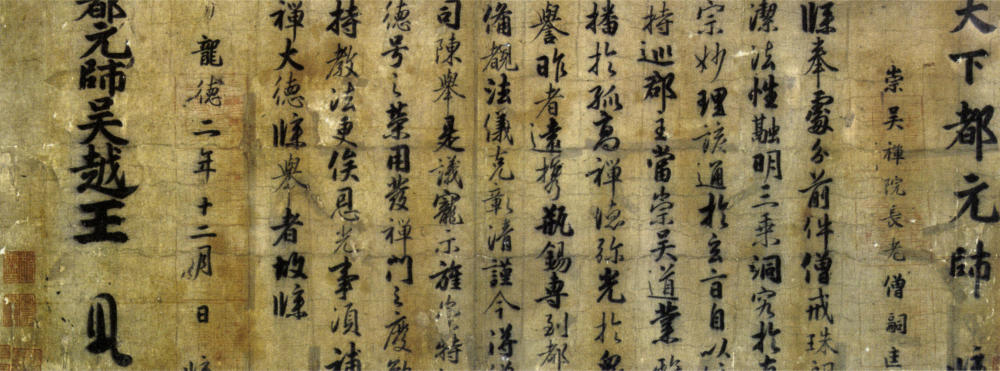 天下都元帥 牒
崇吳禪院長老僧嗣匡
牒奉處分前件僧戒珠
潔法性融明三乘洞究於
宗妙理該通於玄言自以
持巡郡主當崇吳道業
播於孤高禪德弥光於
譽昨者遠携瓶錫專到都
備覩法儀克彰清謹今得
司陳舉是議寵示旌 特
德号之榮用發禪門之慶
持教法更俟恩光事須補
禪大德牒舉者故牒
龍德二年十二月 日 牒
都元帥吳越王